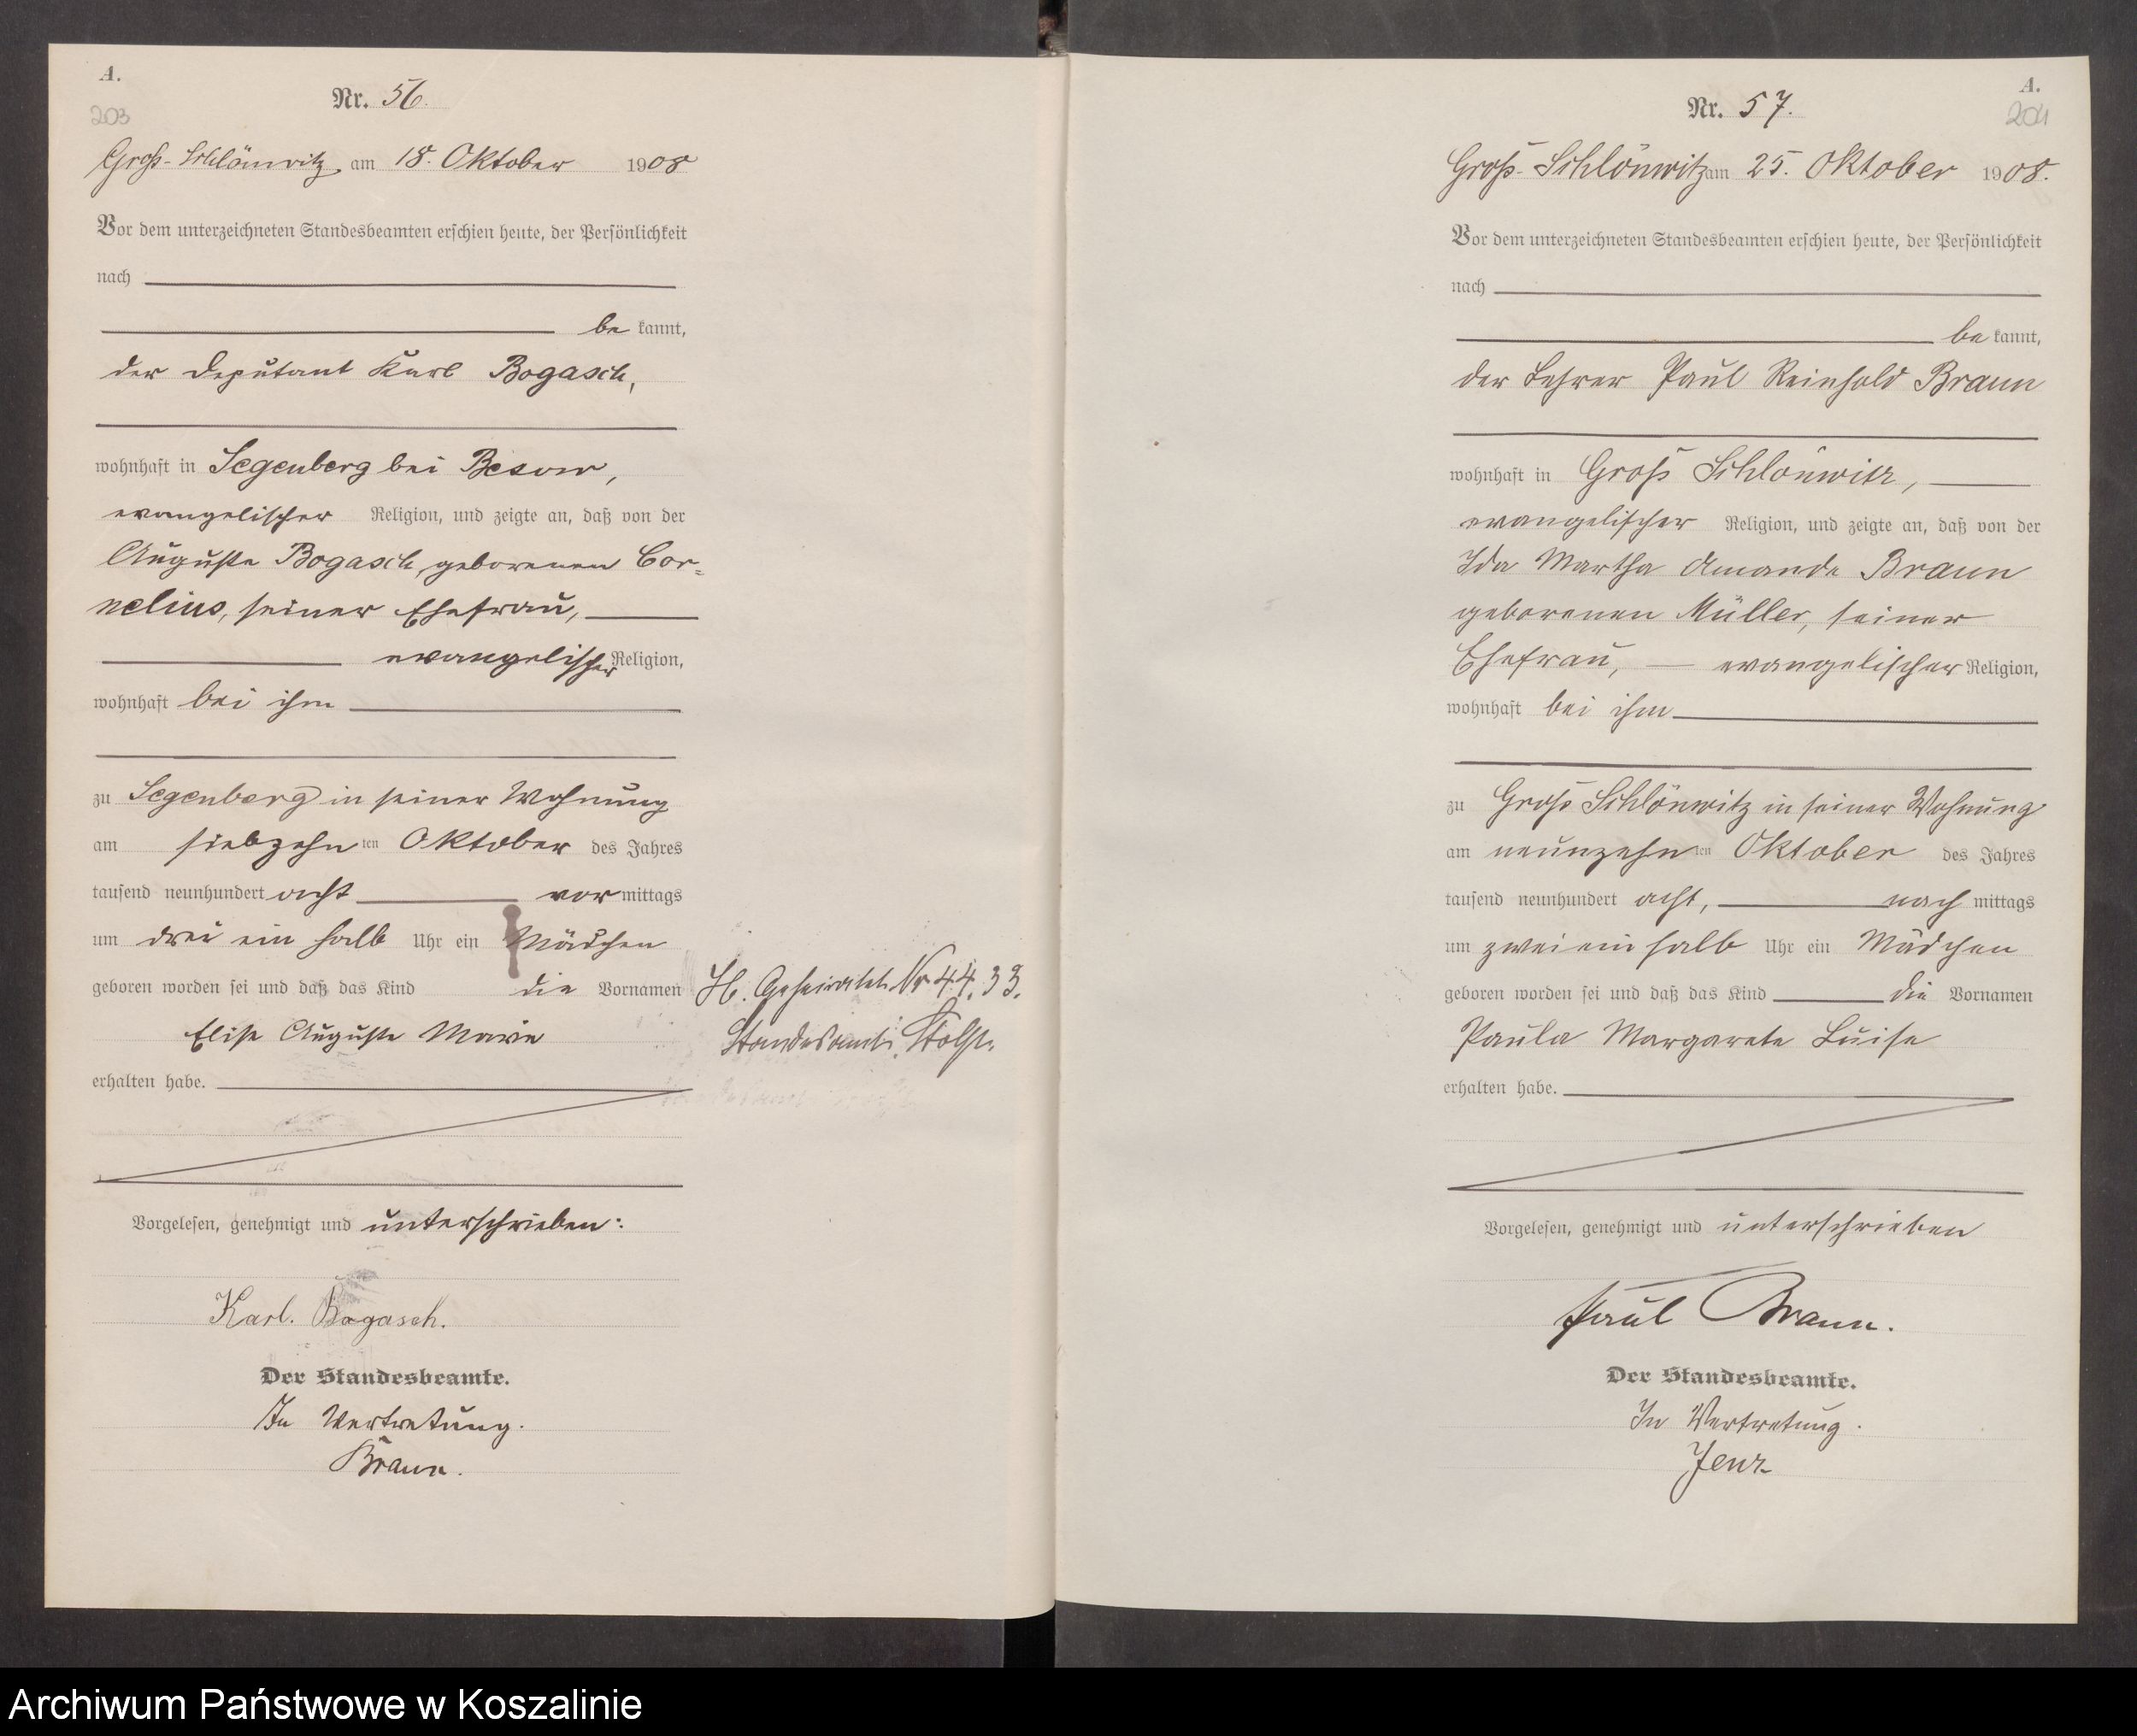 A.
203
Nr. 56.
Groß-Schlönwitz, am 18. Oktober 1908
Vor dem unterzeichneten Standesbeamten erschien heute, der Persönlichkeit
nach
be kannt,
der Deputant Karl Bogasch,
wohnhaft in Segenberg bei Besow,
evangelischer Religion, und zeigte an, daß von der
Auguste Bogasch, geborenen Cor-
nelius, seiner Ehefrau,
evangelischer Religion,
wohnhaft bei ihm
zu Segenberg in seiner Wohnung
am siebzehn ten Oktober des Jahres
tausend neunhundert acht vor mittags
um drei ein halb Uhr ein Mädchen
geboren worden sei und daß das Kind die Vornamen
Elise Auguste Marie
erhalten habe.
H. Geheiratet Nr 44.33.
Standesamt Stolp.
Vorgelesen, genehmigt und unterschrieben:
Karl. Bogasch.
Der Standesbeamte.
In Vertretung.
Braun.
A.
204
Nr. 57.
Groß-Schlönwitz am 25. Oktober 1908.
Vor dem unterzeichneten Standesbeamten erschien heute, der Persönlichkeit
nach
be kannt,
der Lehrer Paul Reinhold Braun
wohnhaft in Groß Schlönwitz,
evangelischer Religion, und zeigte an, daß von der
Ida Martha Amande Braun
geborenen Müller, seiner
Ehefrau, evangelischer Religion,
wohnhaft bei ihm
zu Groß Schlönwitz in seiner Wohnung
am neunzehn ten Oktober des Jahres
tausend neunhundert acht, nach mittags
um zwei ein halb Uhr ein Mädchen
geboren worden sei und daß das Kind die Vornamen
Paula Margarete Luise
erhalten habe.
Vorgelesen, genehmigt und unterschrieben
Paul Braun.
Der Standesbeamte.
In Vertretung.
Jenz
Archiwum Państwowe w Koszalinie